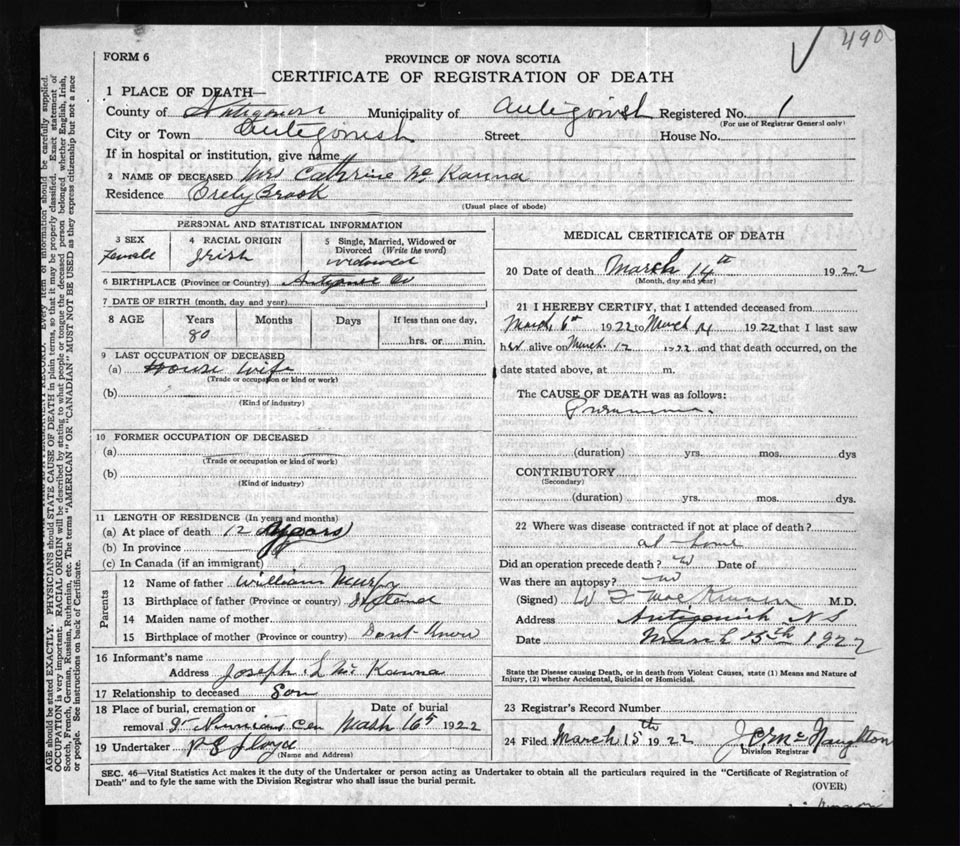 490
FORM 6
PROVINCE OF NOVA SCOTIA
CERTIFICATE OF REGISTRATION OF DEATH
1 PLACE OF DEATH—
County of Municipality of Antigonish Registered No. 1
(For use of Registrar General only)
City or Town Antigonish Street House No.
If in hospital or institution, give name
2 NAME OF DECEASED Mrs Cathrine Mc Kanna
Residence Brook
(Usual place of abode)
PERSONAL AND STATISTICAL INFORMATION
3 SEX 4 RACIAL ORIGIN 5 Single, Married, Widowed or
Divorced (Write the word)
Female Irish widowed
6 BIRTHPLACE (Province or Country) Co
7 DATE OF BIRTH (month, day and year)
8 AGE Years Months Days If less than one day,
80 hrs. or min.
9 LAST OCCUPATION OF DECEASED
(a) House Wife
(Trade or occupation or kind or work)
(b)
(Kind of industry)
10 FORMER OCCUPATION OF DECEASED
(a)
(Trade or occupation or kind of work)
(b)
(Kind of industry)
11 LENGTH OF RESIDENCE (In years and months)
(a) At place of death 12 years
(b) In province
(c) In Canada (if an immigrant)
Parents
12 Name of father William
13 Birthplace of father (Province or country) Ireland
14 Maiden name of mother
15 Birthplace of mother (Province or country) Dont Know
16 Informant's name
Address Joseph L Mc Kanna
17 Relationship to deceased Son
18 Place of burial, cremation or Date of burial
removal St Ninians Cem 16th 1922
19 Undertaker P E Floyd
(Name and Address)
MEDICAL CERTIFICATE OF DEATH
20 Date of death March 14th 1922
(Month, day and year)
21 I HEREBY CERTIFY, that I attended deceased from
March 6th 1922 to March 14 1922 that I last saw
her alive on March 12 1922 and that death occurred, on the
date stated above, at m.
The CAUSE OF DEATH was as follows:
Pneumonia.
(duration) yrs. mos. dys
CONTRIBUTORY
(Secondary)
(duration) yrs. mos. dys.
22 Where was disease contracted if not at place of death?
at home
Did an operation precede death? no Date of
Was there an autopsy? no
(Signed) W F MacKinnon M.D.
Address Antigonish N S
Date March 15th 1922
State the Disease causing Death, or in death from Violent Causes, state (1) Means and Nature of
Injury, (2) whether Accidental, Suicidal or Homicidal.
23 Registrar's Record Number
24 Filed March 15th 1922 J. C. McNaughton
Division Registrar
SEC. 46—Vital Statistics Act makes it the duty of the Undertaker or person acting as Undertaker to obtain all the particulars required in the "Certificate of Registration of
Death" and to fyle the same with the Division Registrar who shall issue the burial permit.
(OVER)
AGE should be stated EXACTLY. PHYSICIANS should STATE CAUSE OF DEATH in plain terms, so that it may be properly classified. Exact statement of
OCCUPATION is very important. RACIAL ORIGIN will be described by stating to what people or tongue the deceased person belonged, whether English, Irish,
Scotch, French, German, Russian, Ruthenian, etc. The terms "AMERICAN" OR "CANADIAN" MUST NOT BE USED as they express citizenship but not a race
or people. See instructions on back of Certificate.